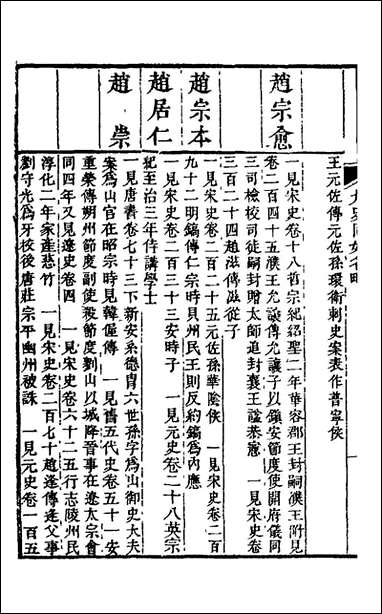 王元佐傳元佐孫環衞刺史案表作普寧侯
趙宗愈
一見宋史卷十八哲宗紀紹聖二年華容郡王封嗣濮王附見
卷二百四十五濮王允讓傳允讓子以鎮安節度使開府儀同
三司檢校司徒嗣封贈太師追封襄王謚恭憲 一見宋史卷
三百二十四趙滋傳滋從子
趙宗本
一見宋史卷二百二十五元佐孫華陰侯 一見宋史卷二百
九十二明鎬傳仁宗時貝州民王則反約鎬爲內應
趙居仁
一見宋史卷二百三十三安時子 一見元史卷二十八英宗
紀至治三年侍講學士
趙崇
一見唐書卷七十三下新安系德胄六世孫字爲山御史大夫
案爲山官在昭宗時見韓偓傳 一見舊五代史卷五十一安
重榮傳朔州節度副使殺節度劉山以城降晉事在遼太宗會
同四年又見遼史卷四 一見宋史卷六十二五行志陵州民
淳化二年家產慈竹 一見宋史卷二百七十趙逢傳逢父事
劉守光爲牙校後唐莊宗平幽州被誅 一見元史卷一百五